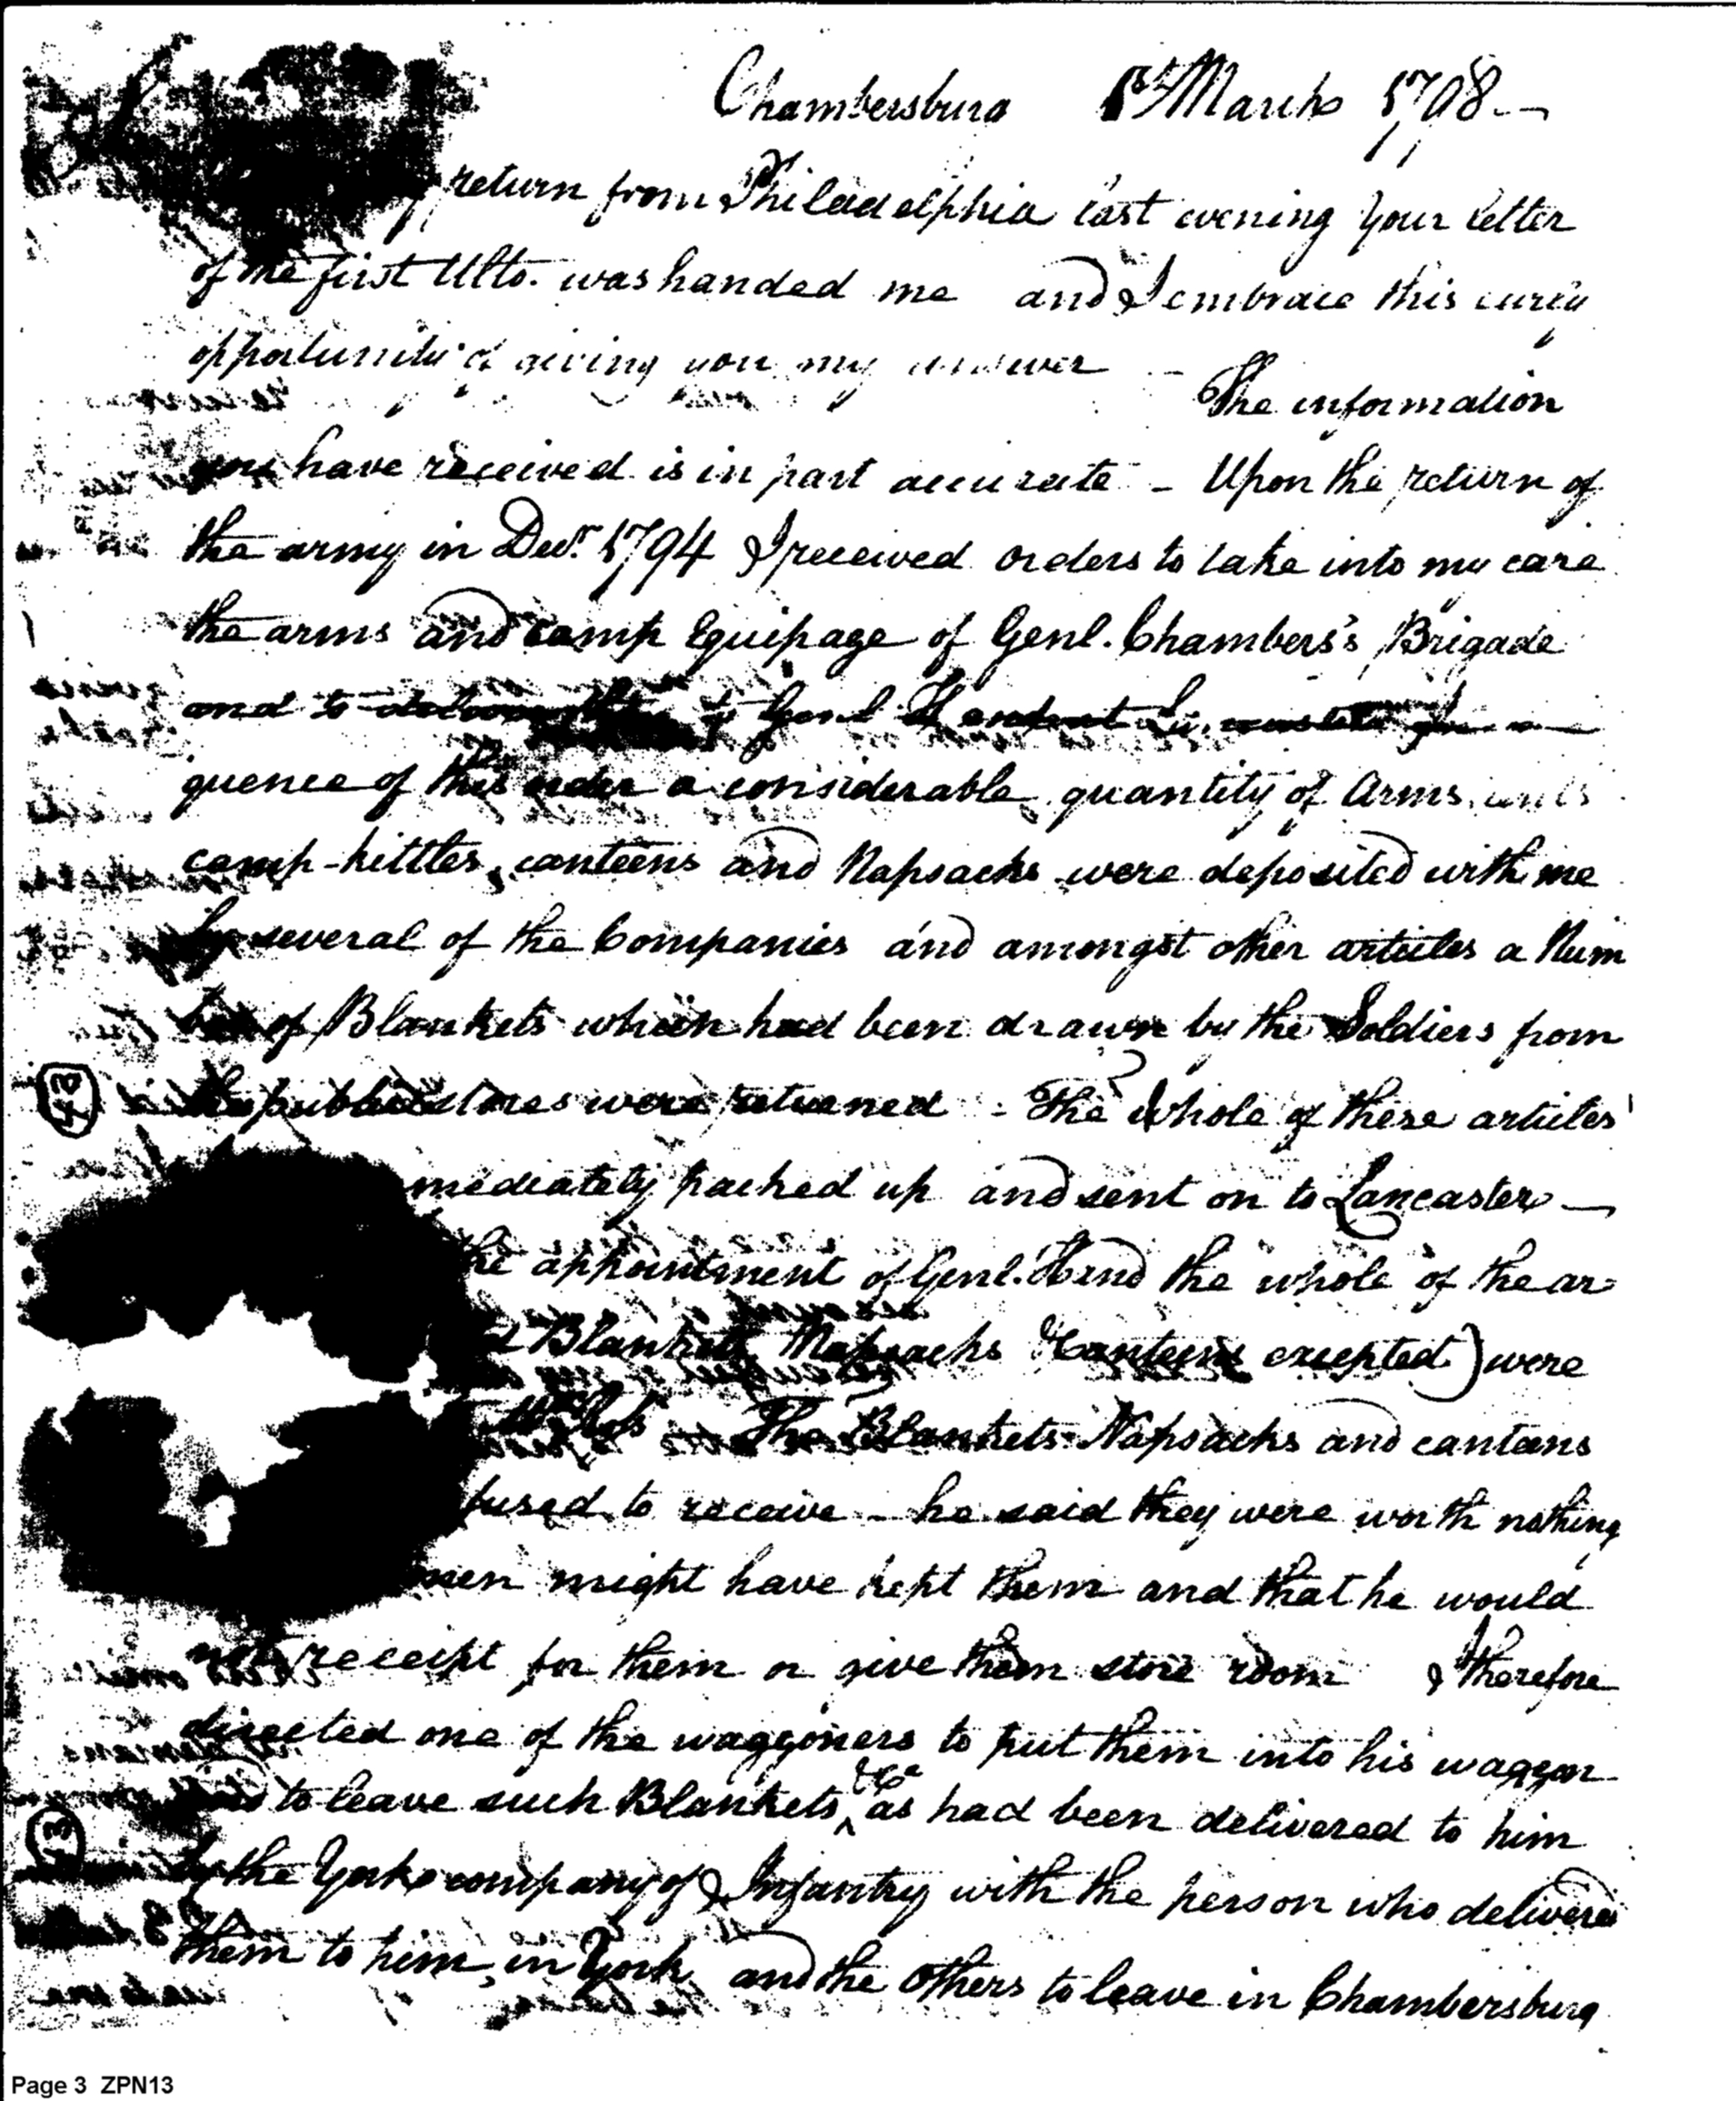 Chambersburg 1st March 1798. —
return from Philadelphia last evening your letter
of the first Ulto. was handed me and I embrace this early
opportunity of giving you my answer —
The information
you have received is in part accurate - Upon the return of
the army in Decr. 1794 I received orders to take into my care
the arms and camp Equipage of Genl. Chambers's Brigade
and to Genl
quence of this order a considerable quantity of Arms,
camp-kittles, canteens and Napsacks were deposited with me
by several of the Companies and amongst other articles a Num
ber of Blankets which had been drawn by the Soldiers from
the public stores were returned - The whole of these articles
mediately packed up and sent on to Lancaster —
the appointment of Genl. Hand the whole of the ar
Blankets Napsacks Canteens excepted) were
The Blankets Napsacks and canteens
fused to receive - he said they were worth nothing
men might have kept them and that he would
not receipt for them or give them store room I therefore
directed one of the waggoners to put them into his waggon
to leave such Blankets &ca as had been delivered to him
by the York company of Infantry with the person who delivered
them to him, in York and the others to leave in Chambersburg
Page 3 ZPN13